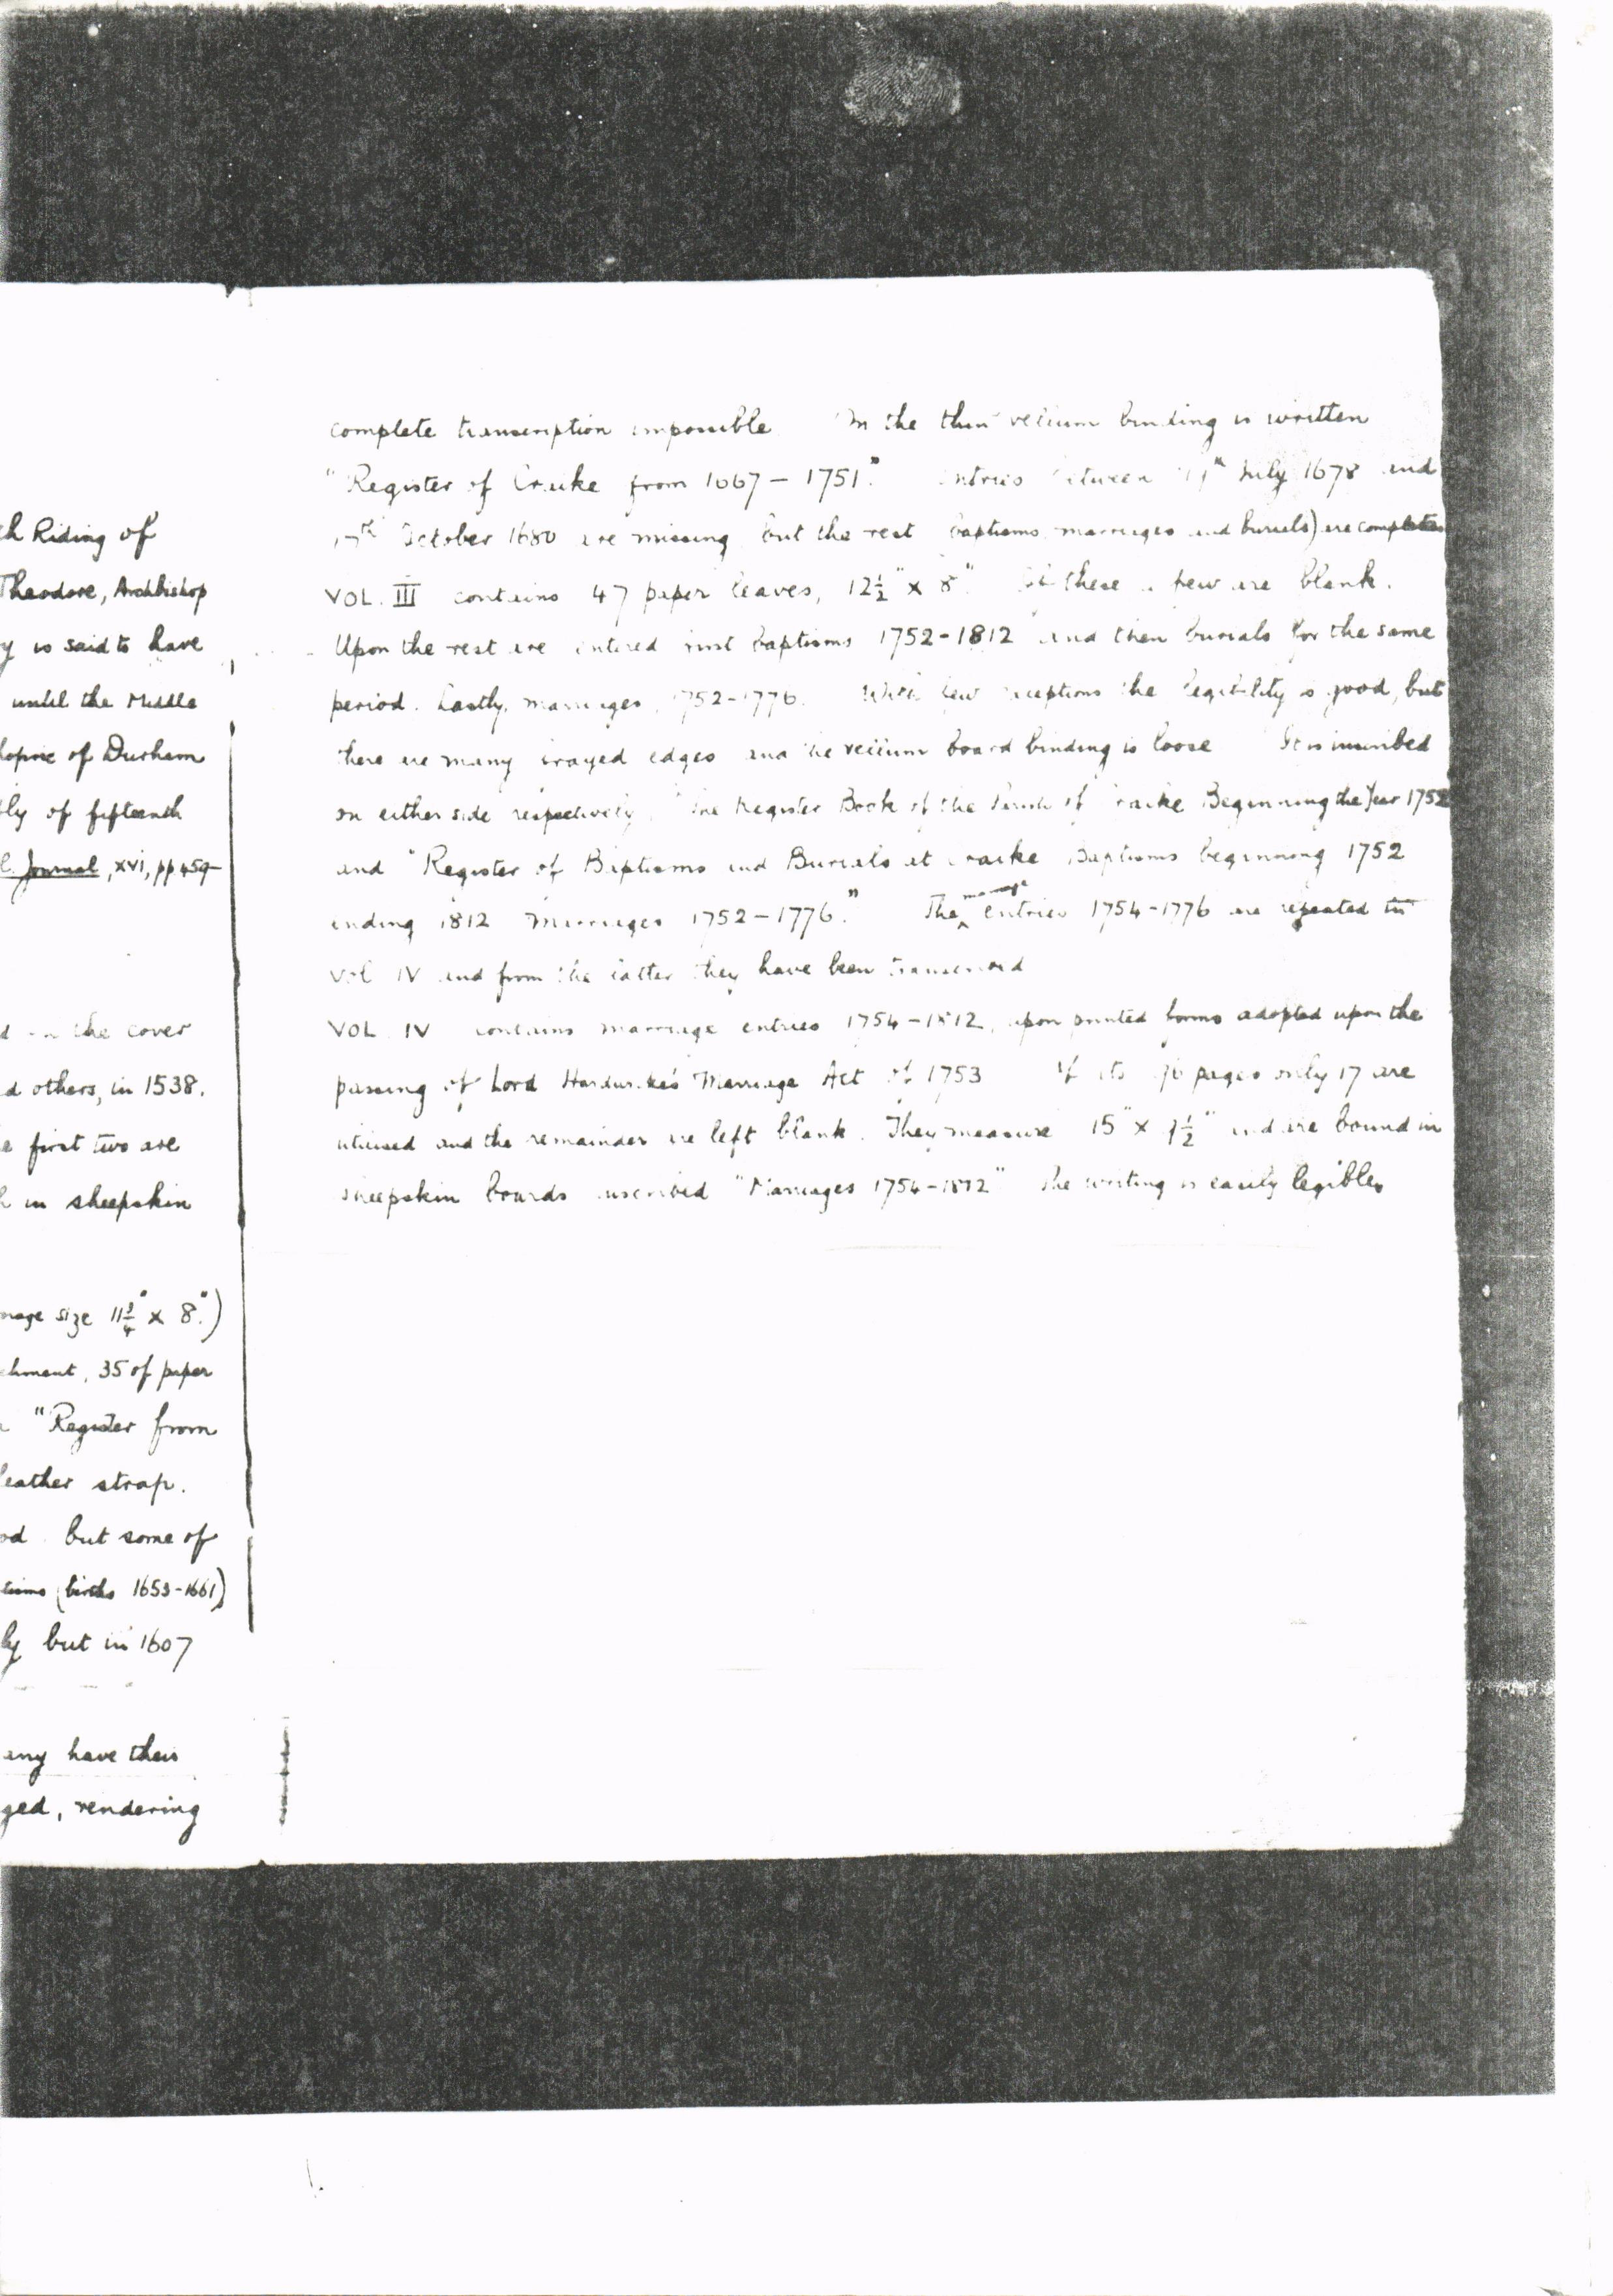 ch Riding of
Theodore, Archbishop
y is said to have
until the Middle
of Durham
of fifteenth
Journal, XVI, pp 459-
the cover
d others, in 1538.
e first two are
in sheepskin
size 11¾" x 8".)
chment, 35 of paper
"Register from
leather strap.
od but some of
(births 1653-1661)
ly but in 1607
any have their
ged, rendering
complete transcription impossible On the thin vellum binding is written
"Register of Craike from 1667 - 1751". Entries between July 1678 and
October 1680 are missing but the rest baptisms, marriages and burials) are complete
VOL. III contains 47 paper leaves, 12½" x 8". Of these a few are blank.
Upon the rest are entered first baptisms 1752-1812 and then burials for the same
period. Lastly, marriages, 1752-1776. With few exceptions the legibility is good, but
there are many frayed edges and the vellum board binding is loose It is inscribed
on either side respectively, "The Register Book of the Parish of Craike Beginning the Year 1752
and "Register of Baptisms and Burials at Craike Baptisms beginning 1752
ending 1812 Marriages 1752-1776." The marriage entries 1754-1776 are repeated in
Vol IV and from the latter they have been transcribed
VOL. IV contains marriage entries 1754-1812, upon printed forms adopted upon the
passing of Lord Hardwicke's Marriage Act of 1753 Of its pages only 17 are
utilised and the remainder are left blank. They measure 15" x 9½" and are bound in
sheepskin boards inscribed "Marriages 1754-1812" The writing is easily legible.